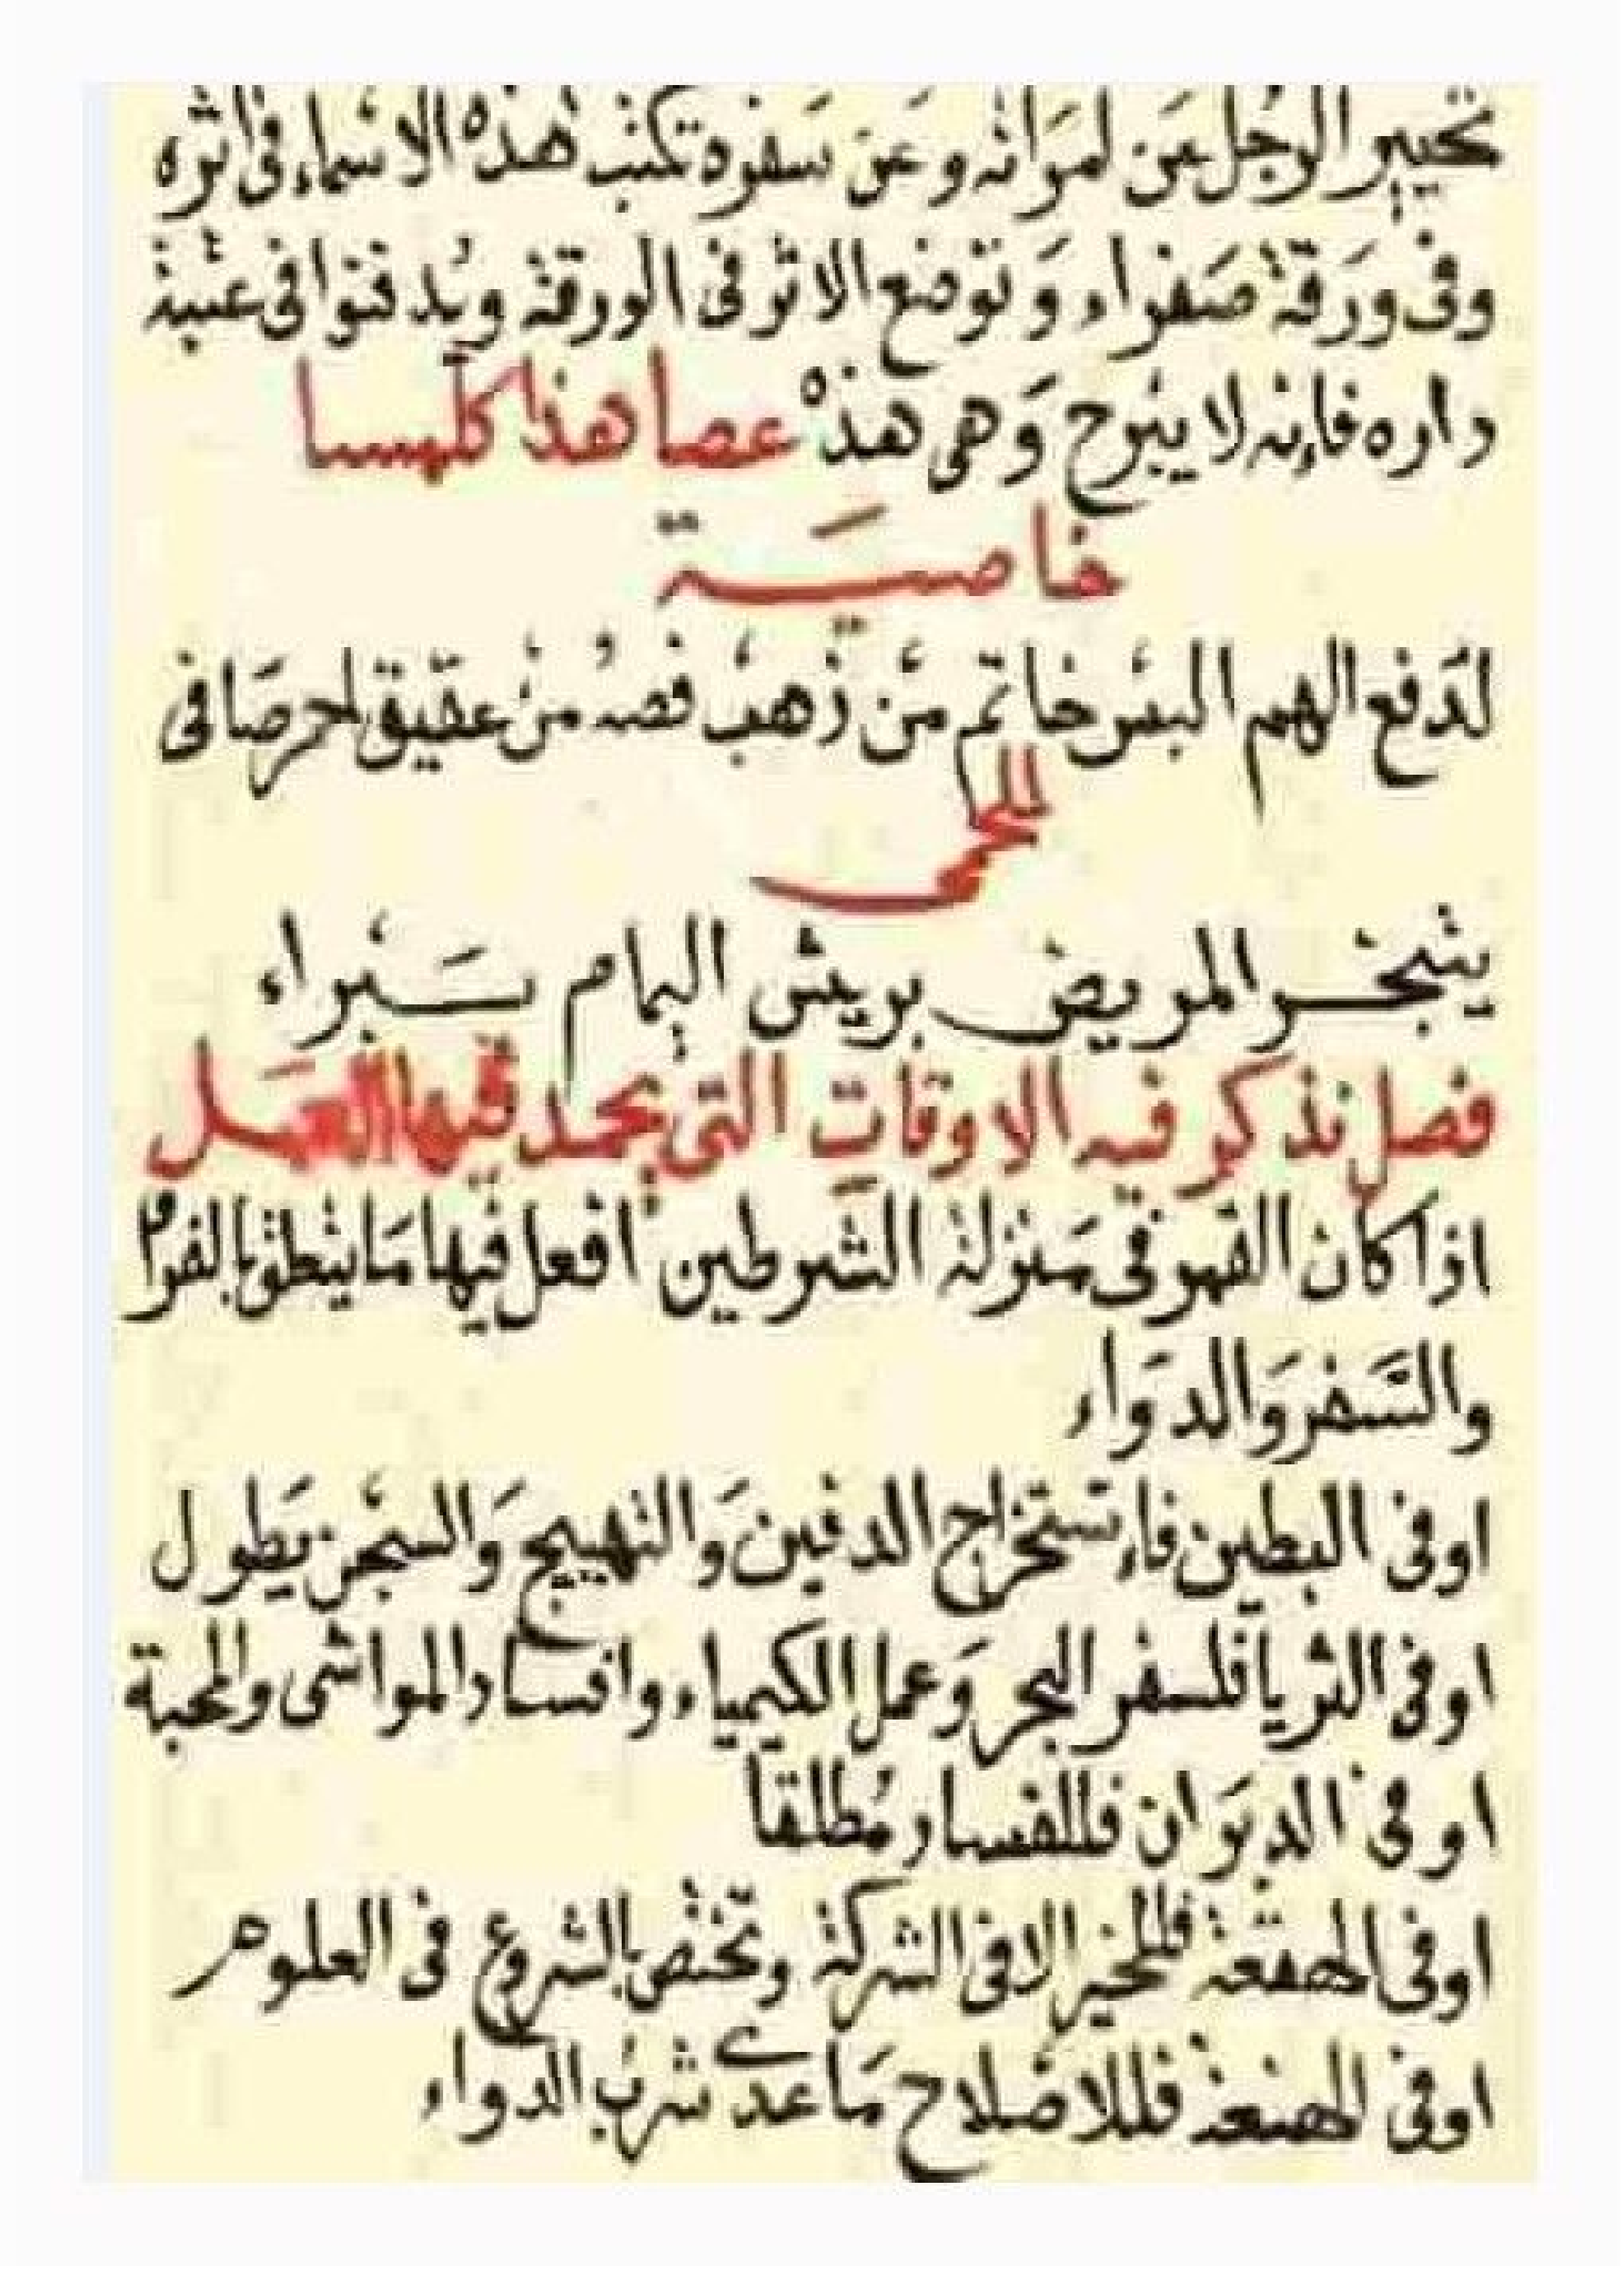 تحيير الرجل عن امرأته وعن سفره تكتب هذه الاسماء في اثره
وفي ورقة صفراء وتوضع الاثر في الورقة ويدفنوا في عتبة
داره فإنه لا يبرح وهي هذه عصا هذا كلهسا
خاصية
لدفع الهم البس خاتم من ذهب فصه من عقيق احمر صافي
للحمى
يتبخر المريض بريش اليمام يبراء
فصل نذكر فيه الاوقات التي يحمد فيها العمل
اذا كان القمر في منزلة الشرطين افعل فيها ما يتطق بالفرام
والسفر والدواء
اوفي البطين فاءستخراج الدفين والتهييج والسجن يطول
اوفي الثريا فلسفر البحر وعمل الكيمياء وافساد المواشي والمحبة
اوفي الدبران فللفساد مطلقا
اوفي الهقعة فللخير الا في الشركة وتختص بالشروع في العلوم
اوفي الهنعة فللاصلاح ما عدى شرب الدواء